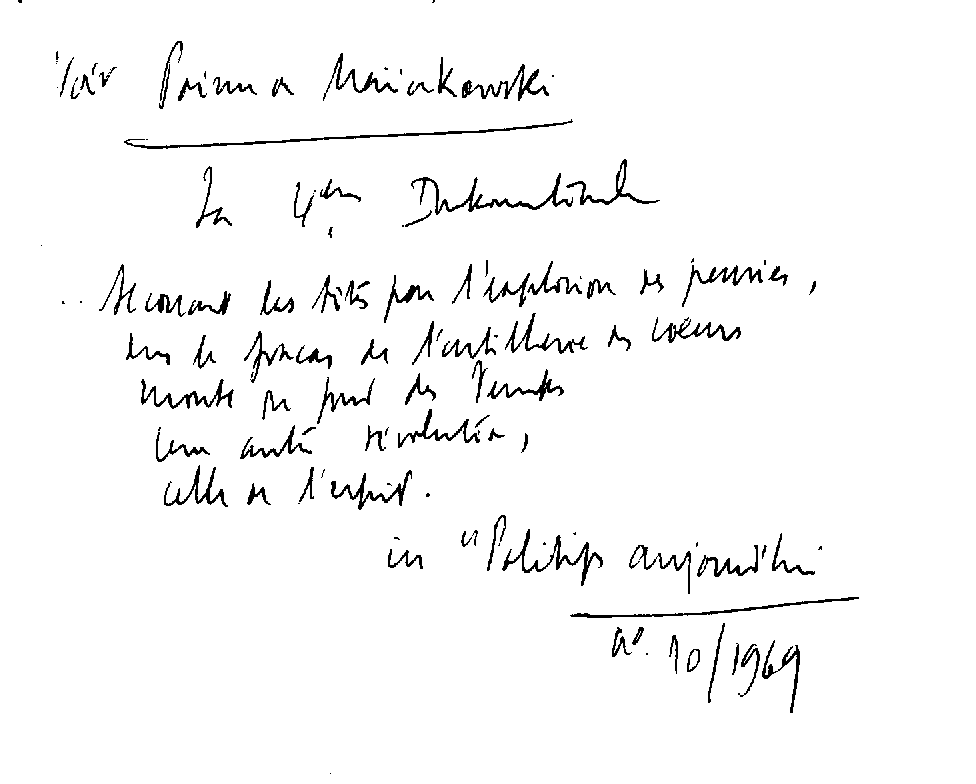 Voir Poème de Maïakowski
La 4ème Internationale
.. secouant les têtes par l'explosion des pensées,
dans le fracas de l'artillerie des coeurs
monte du fond des temps
une autre révolution,
celle de l'esprit.
in "Politique aujourd'hui
n°. 10/1969